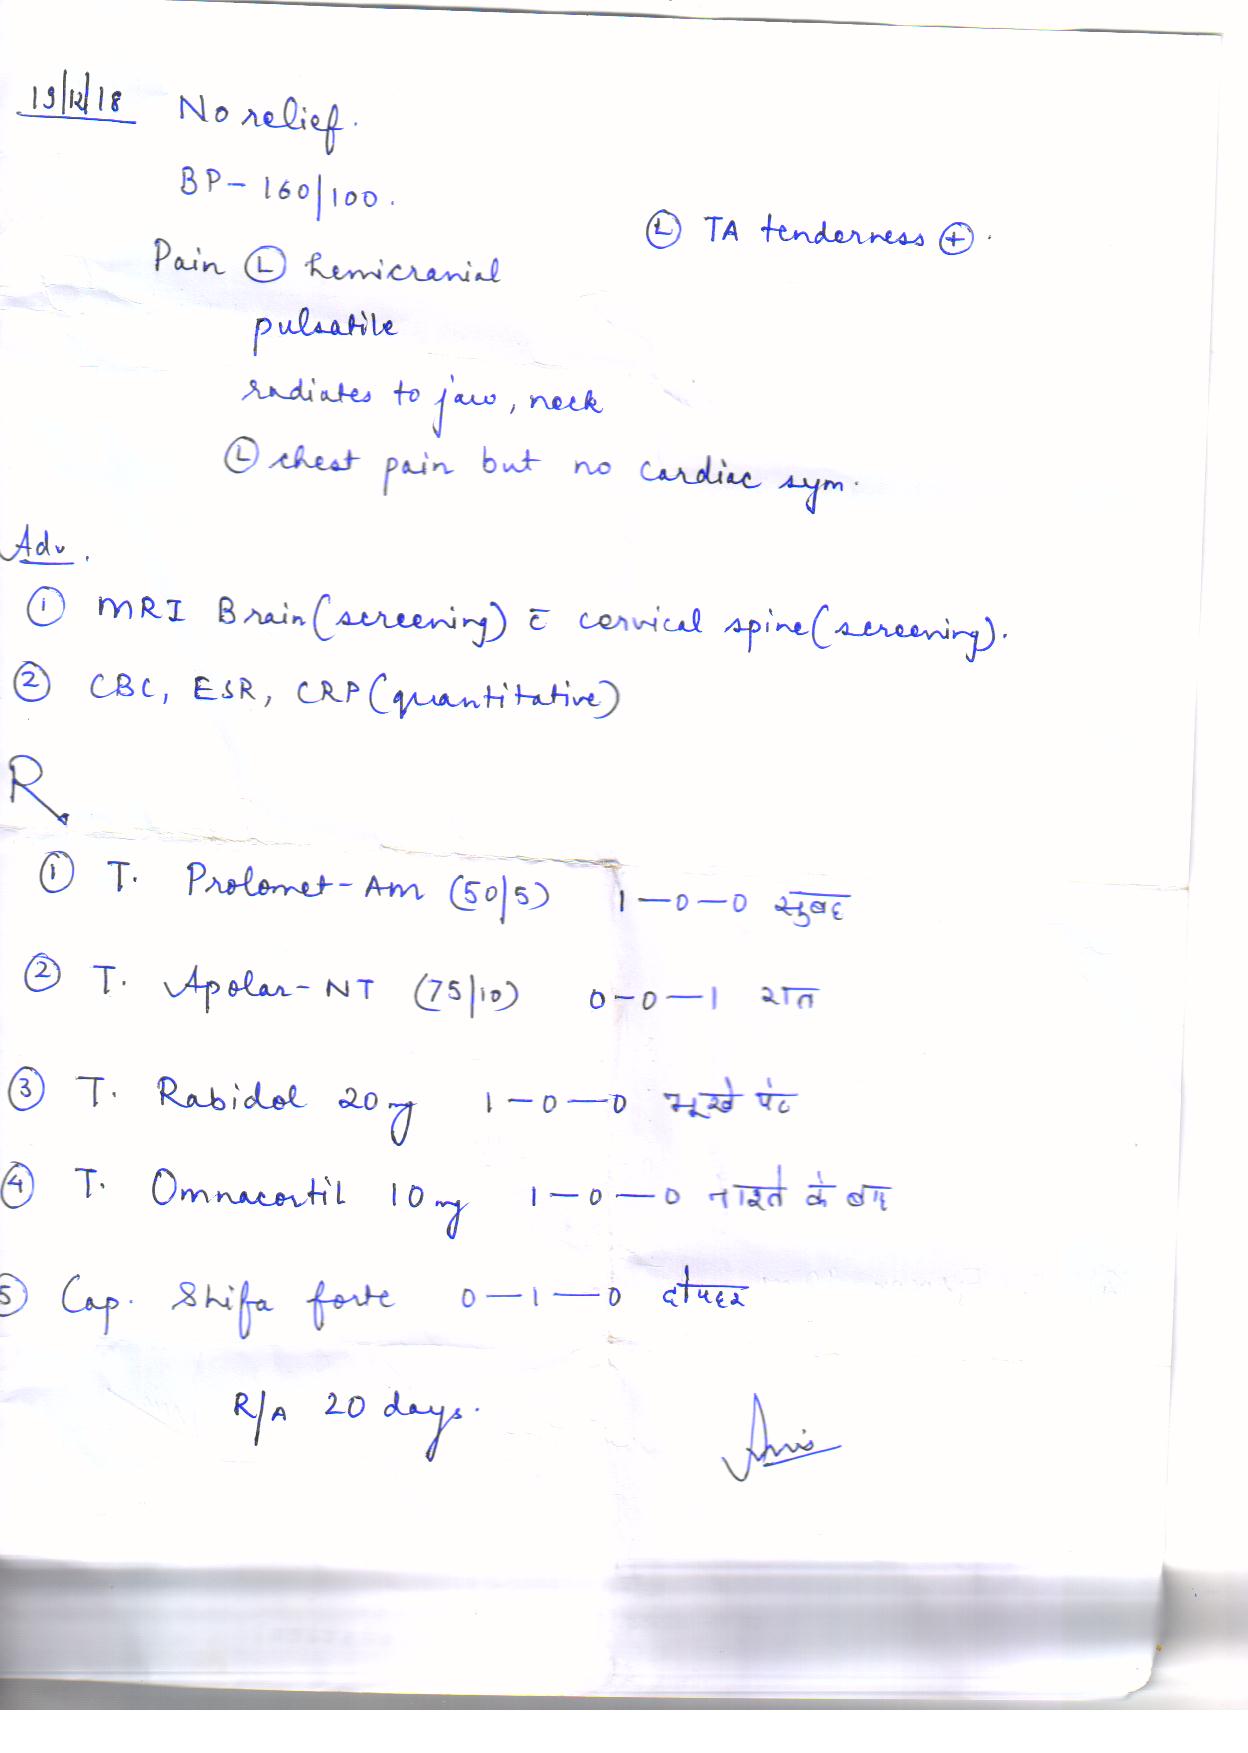 19/12/18 No relief.
BP - 160/100.
Ⓛ TA tenderness ⊕.
Pain Ⓛ hemicranial
pulsatile
radiates to jaw, neck
Ⓛ chest pain but no cardiac sym.
Adv.
① MRI Brain (screening) c̄ cervical spine (screening).
② CBC, ESR, CRP (quantitative)
R
① T. Prolomet-Am (50/5) 1-0-0 सुबह
② T. Apolar-NT (75/10) 0-0-1 रात
③ T. Rabidol 20mg 1-0-0 भूखे पेट
④ T. Omnacortil 10mg 1-0-0 नाश्ते के बाद
⑤ Cap. Shifa forte 0-1-0 दोपहर
R/A 20 days.